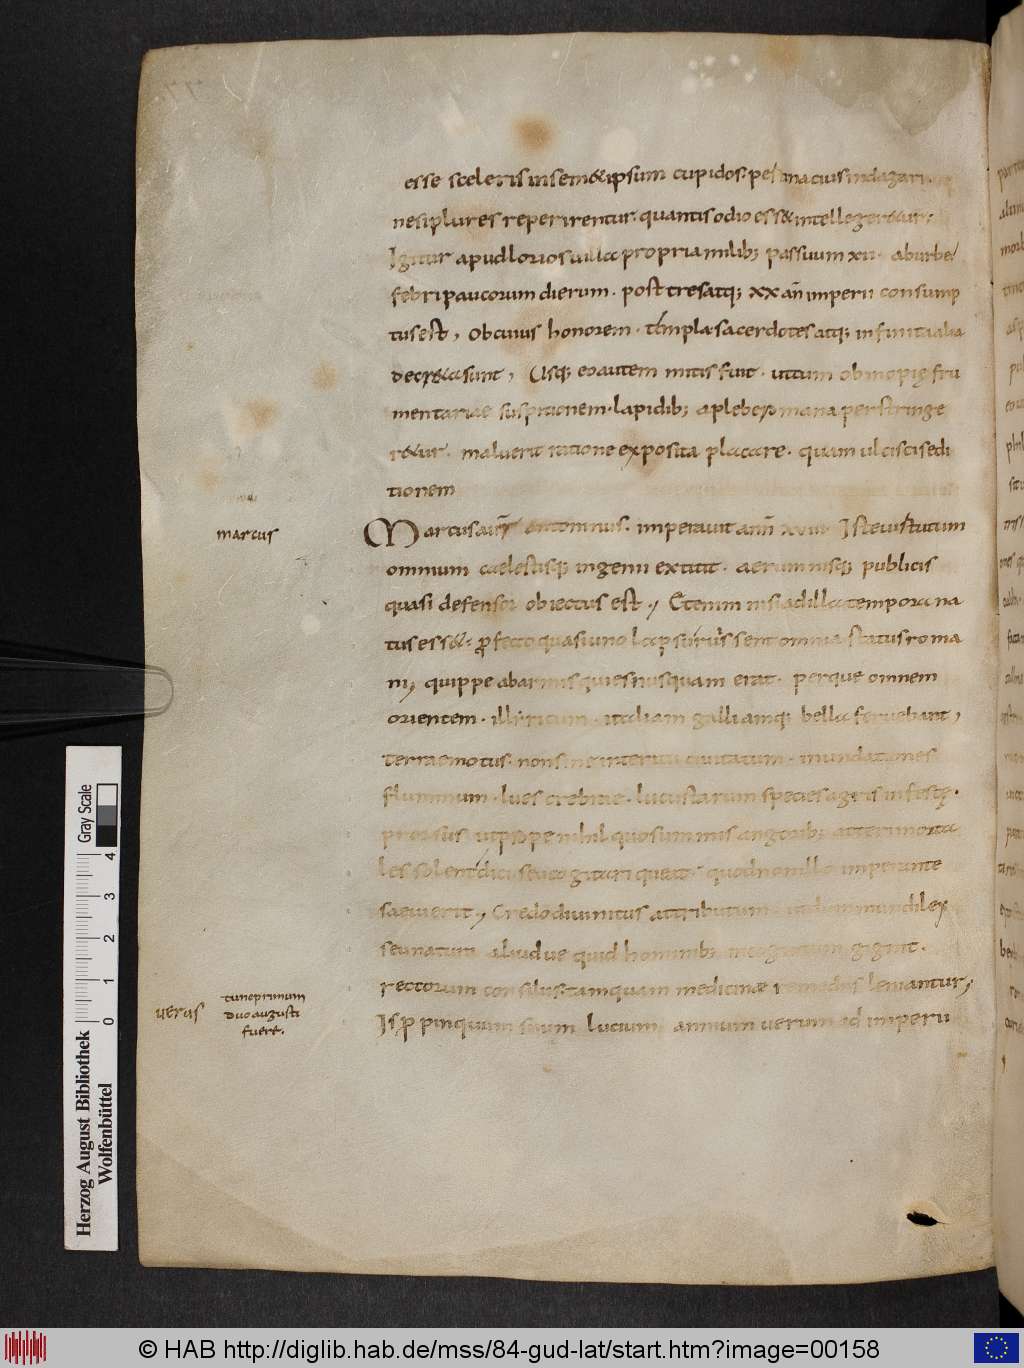 esse sceleris in sem&ipsum cupidos. pertinacius indagari
ne si plures reperirentur. quantis odio ess& intelleger&ur;
Igitur apud lorios uilla propria milib; passuum xii. ab urbe
febri paucorum dierum. post tres atq; xx ann imperii consump
tus est, Ob cuius honorem. templa sacerdotes atq; infinita alia
decr&a sunt, Usq; eo autem mitis fuit. ut cum ob inopię fru
mentariae suspitionem. lapidib; a plebe romana perstringe
r&ur. maluerit ratione exposita placare. quam ulcisci sedi
tionem
marcus
Marcus aur antoninus. imperauit ann xviii Iste uirtutum
omnium caelestisq; ingenii extitit. aerumnisq; publicis
quasi defensor obiectus est, Etenim nisi ad illa tempora na
tus ess&. profecto quasi uno lapsu ruissent omnia status roma
ni, quippe ab armis quies nusquam erat. perque omnem
orientem. illiricum. italiam galliamq; bella feruebant,
terrae motus. non sine interitu ciuitatum. inundationes
fluminum. lues crebrae. lucustarum species agris infestę.
prorsus ut prope nihil quo summis angorib; atteri morta
les solent dici seu cogitari queat. quod non illo imperante
saeuierit, Credo diuinitus attributum ut dum mundi lex
seu natura aliud ue quid hominib; incognitum gignit.
rectorum consiliis. tamquam medicinae remediis leniantur,
uerus
tunc primum
duo augusti
fuere.
Is propinquum suum lucium annium uerum ad imperii
Herzog August Bibliothek
Wolfenbüttel
0 1 2 3 4
Gray Scale
© HAB http://diglib.hab.de/mss/84-gud-lat/start.htm?image=00158